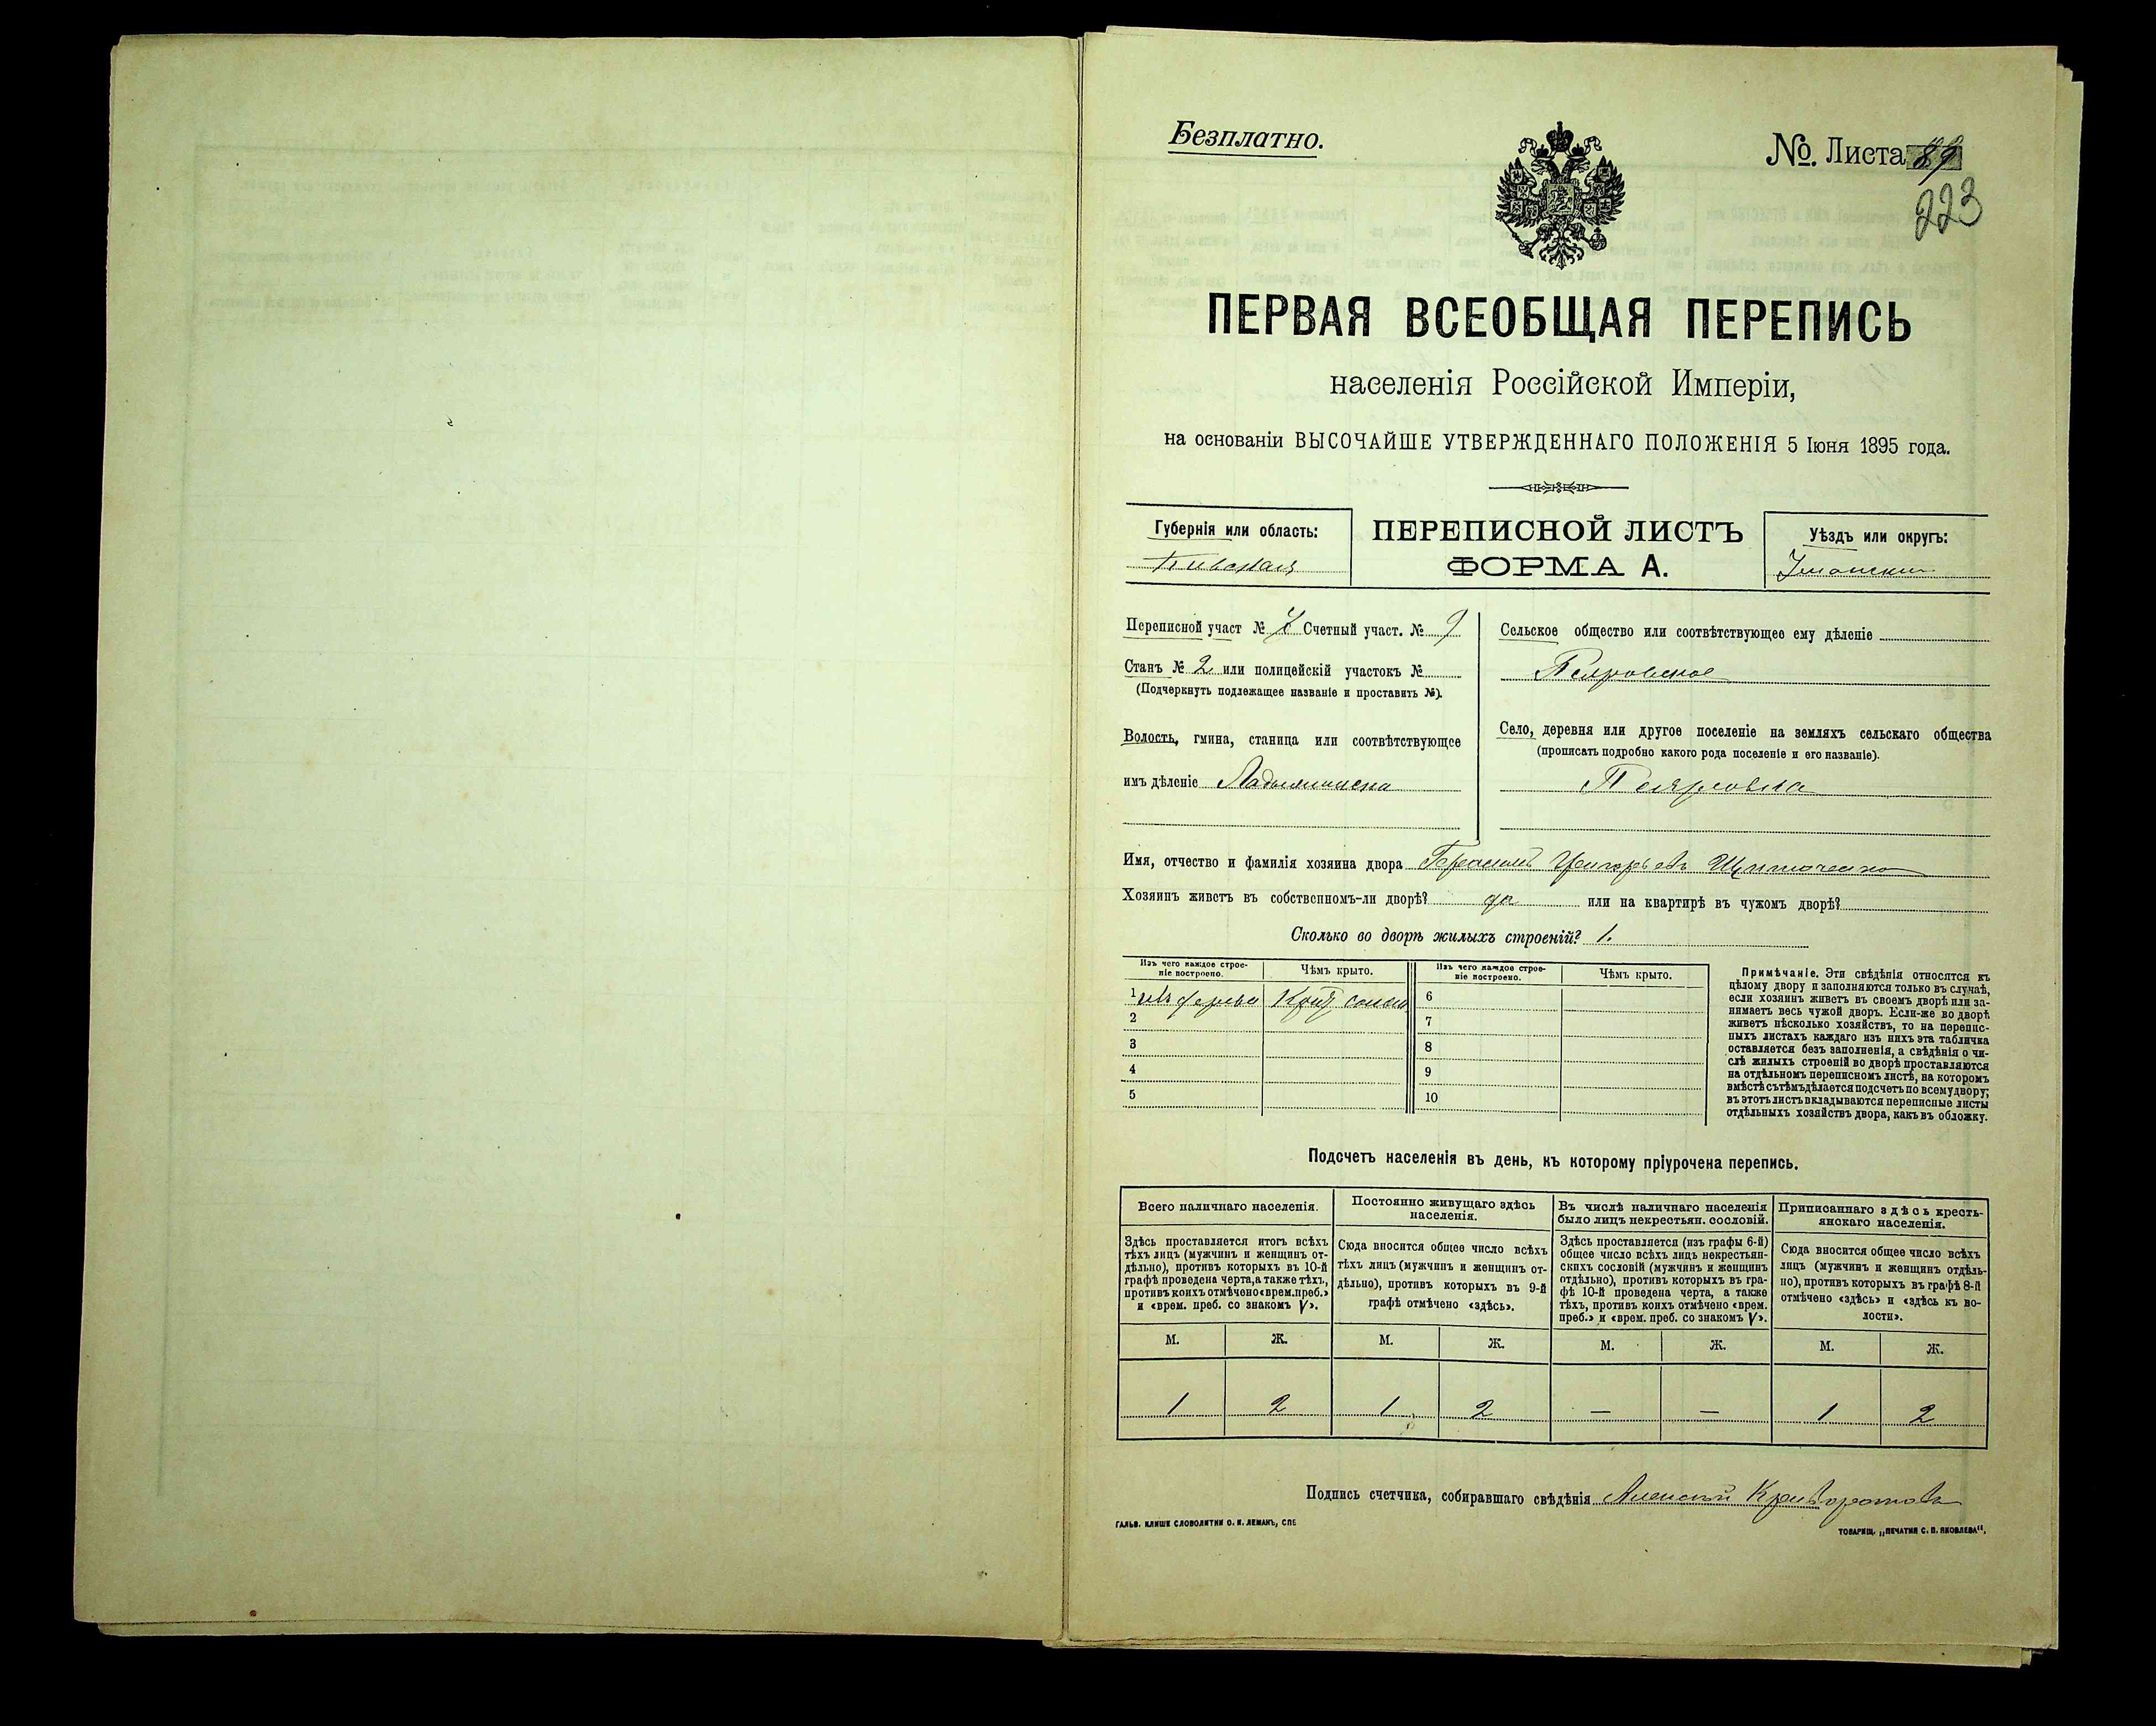 Безплатно.
№. Листа 89
223
ПЕРВАЯ ВСЕОБЩАЯ ПЕРЕПИСЬ
населенія Россійской Имперіи,
на основаніи ВЫСОЧАЙШЕ УТВЕРЖДЕННАГО ПОЛОЖЕНІЯ 5 Іюня 1895 года.
Губернія или область:
Кіевская
ПЕРЕПИСНОЙ ЛИСТЪ
ФОРМА А.
Уѣздъ или округъ:
Уманскій
Переписной участ № 4 Счетный участ. № 9
Станъ № 2 или полицейскій участокъ №
(Подчеркнуть подлежащее названіе и проставить №).
Волость, гмина, станица или соотвѣтствующее
имъ дѣленіе
Сельское общество или соотвѣтствующее ему дѣленіе
Петровское
Село, деревня или другое поселеніе на земляхъ сельскаго общества
(прописать подробно какого рода поселеніе и его названіе).
Петровка
Имя, отчество и фамилія хозяина двора Герасимъ Григорьевъ
Хозяинъ живетъ въ собственномъ-ли дворѣ? да или на квартирѣ въ чужомъ дворѣ?
Сколько во дворѣ жилыхъ строеній? 1.
Изъ чего каждое строе-
ніе построено.
Чѣмъ крыто.
Изъ чего каждое строе-
ніе построено.
Чѣмъ крыто.
1 изъ дерева
2
3
4
5
6
7
8
9
10
Примѣчаніе. Эти свѣдѣнія относятся къ
цѣлому двору и заполняются только въ случаѣ,
если хозяинъ живетъ въ своемъ дворѣ или за-
нимаетъ весь чужой дворъ. Если-же во дворѣ
живетъ нѣсколько хозяйствъ, то на перепис-
ныхъ листахъ каждаго изъ нихъ эта табличка
оставляется безъ заполненія, а свѣдѣнія о чи-
слѣ жилыхъ строеній во дворѣ проставляются
на отдѣльномъ переписномъ листѣ, на которомъ
вмѣстѣ съ тѣмъ дѣлается подсчетъ по всему двору;
въ этотъ листъ вкладываются переписные листы
отдѣльныхъ хозяйствъ двора, какъ въ обложку.
Подсчетъ населенія въ день, къ которому пріурочена перепись.
Всего наличнаго населенія.
Здѣсь проставляется итогъ всѣхъ
тѣхъ лицъ (мужчинъ и женщинъ от-
дѣльно), противъ которыхъ въ 10-й
графѣ проведена черта, а также тѣхъ,
противъ коихъ отмѣчено «врем. преб.»
и «врем. преб. со знакомъ V».
Постоянно живущаго здѣсь
населенія.
Сюда вносится общее число всѣхъ
тѣхъ лицъ (мужчинъ и женщинъ от-
дѣльно), противъ которыхъ въ 9-й
графѣ отмѣчено «здѣсь».
Въ числѣ наличнаго населенія
было лицъ некрестьян. сословій.
Здѣсь проставляется (изъ графы 6-й)
общее число всѣхъ лицъ некрестьян-
скихъ сословій (мужчинъ и женщинъ
отдѣльно), противъ которыхъ въ гра-
фѣ 10-й проведена черта, а также
тѣхъ, противъ коихъ отмѣчено «врем.
преб.» и «врем. преб. со знакомъ V».
Приписаннаго здѣсь кресть-
янскаго населенія.
Сюда вносится общее число всѣхъ
лицъ (мужчинъ и женщинъ отдѣль-
но), противъ которыхъ въ графѣ 8-й
отмѣчено «здѣсь» и «здѣсь къ во-
лости».
М. Ж. М. Ж. М. Ж. М. Ж.
1 2 1 2 — — 1 2
Подпись счетчика, собиравшаго свѣдѣнія Алексѣй
ГАЛЬВ. КЛИШЕ СЛОВОЛИТНИ О. И. ЛЕМАНЪ, СПБ
ТОВАРИЩ. „ПЕЧАТНЯ С. П. ЯКОВЛЕВА".